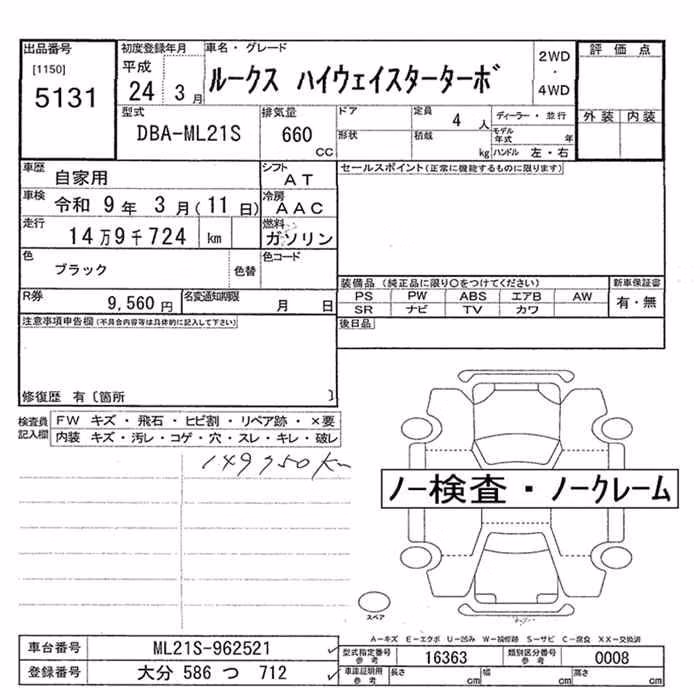 出品番号 初度登録年月 車名・グレード 2WD ・ 4WD 評価点
[1150] 平成 24 3月 ルークス ハイウェイスターターボ
5131
型式 排気量 ドア 定員 4 人 ディーラー・並行 外装 内装
DBA-ML21S 660 CC 形状 積載 kg モデル年式 年
ハンドル 左・右
車歴 自家用 シフト AT セールスポイント(正常に機能するものに限ります)
車検 令和 9年 3月(11日) 冷房 AAC
走行 14万9千724 km 燃料 ガソリン
色 ブラック 色替 色コード
装備品(純正品に限り○をつけてください) 新車保証書
R券 9,560円 名変通知期限 月 日 PS PW ABS エアB AW 有・無
SR ナビ TV カワ
注意事項申告欄(不具合内容等は具体的に記入して下さい) 後日品
修復歴 有〔箇所 〕
検査員記入欄 FW キズ・飛石・ヒビ割・リペア跡・×要
内装 キズ・汚レ・コゲ・穴・スレ・キレ・破レ
149750km
ノー検査・ノークレーム
スペア
A-キズ E-エクボ U-凹み W-補修跡 S-サビ C-腐食 XX-交換済
車台番号 ML21S-962521 型式指定番号 参考 16363 類別区分番号 参考 0008
登録番号 大分 586 つ 712 車庫証明用 参考 長さ cm 幅 cm 高さ cm